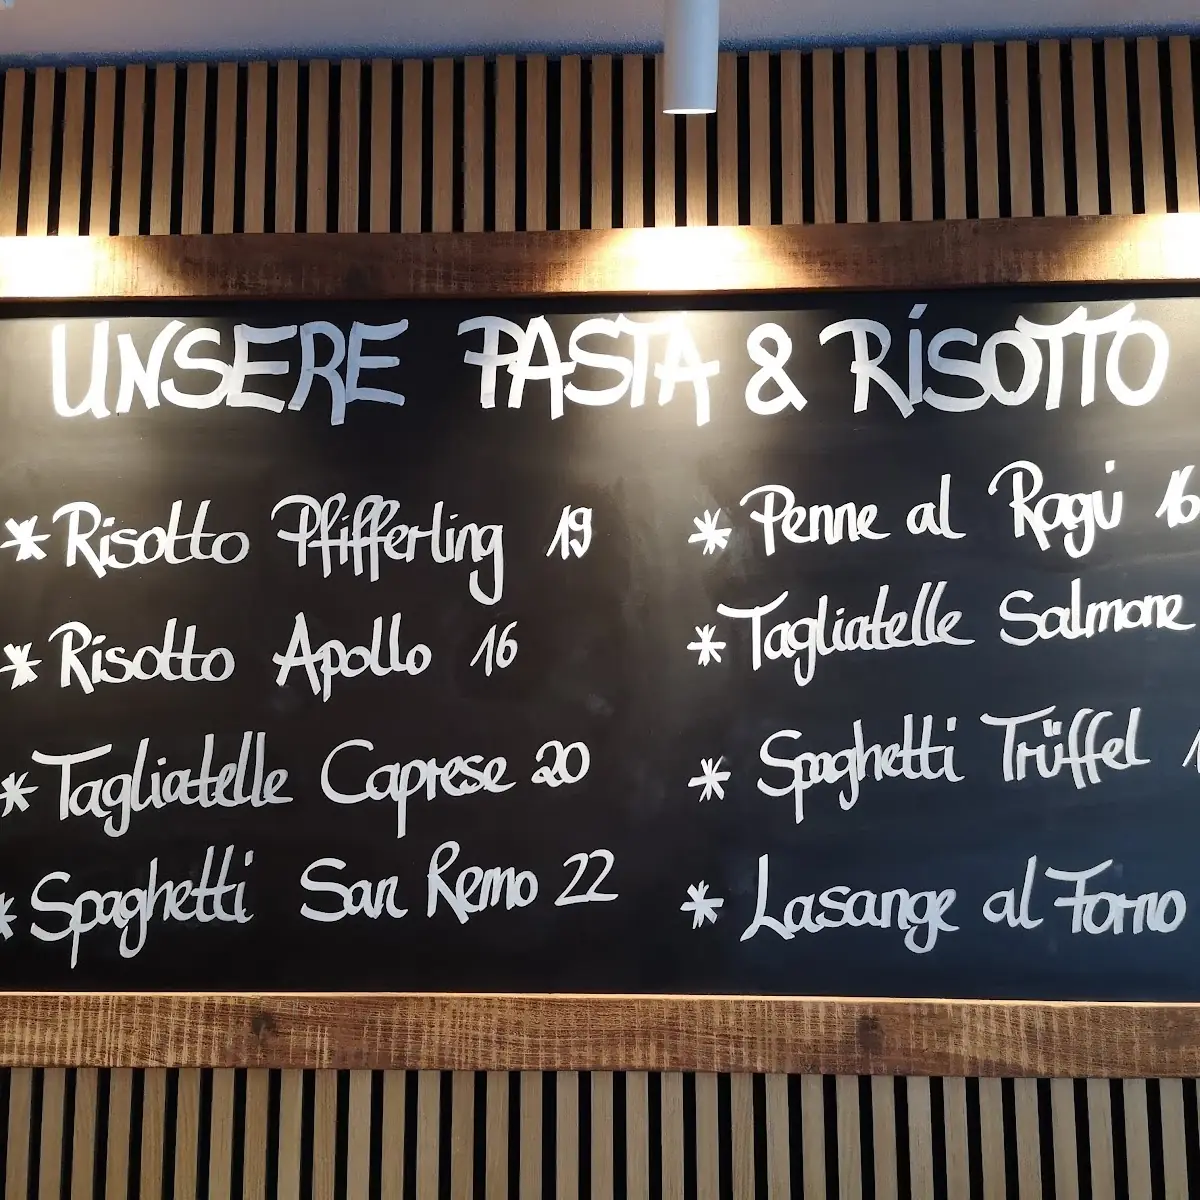 UNSERE PASTA & RISOTTO
* Risotto Pfifferling 19
* Risotto Apollo 16
* Tagliatelle Caprese 20
* Spaghetti San Remo 22
* Penne al Ragú 16
* Tagliatelle Salmone
* Spaghetti Trüffel
* Lasange al Forno